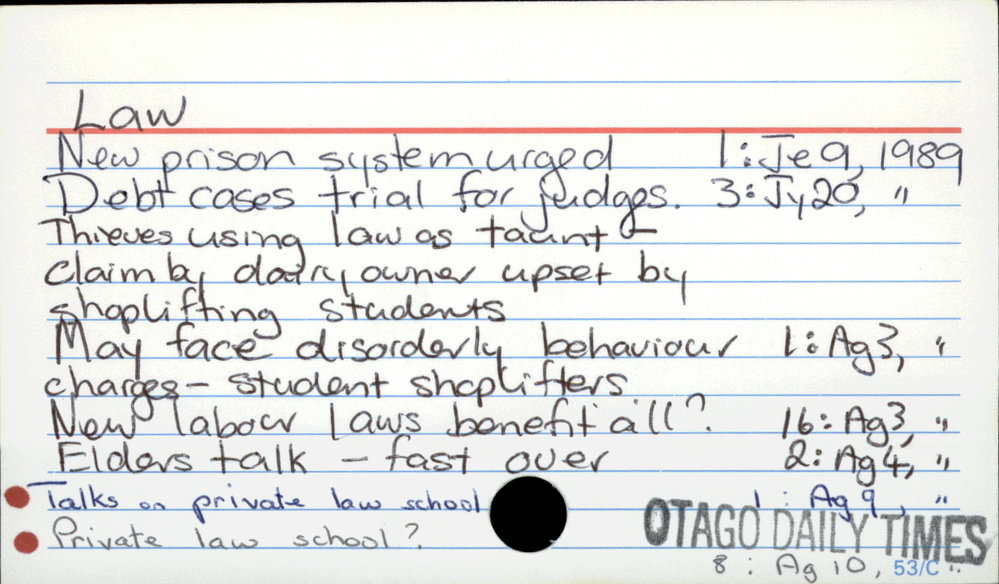 Law
New prison system urged 1:Je 9, 1989
Debt cases trial for judges. 3:Jy20, "
Thieves using law as taunt -
claim by dairy owner upset by
shoplifting students
May face disorderly behaviour 1:Ag3, "
charges - student shoplifters
New labour laws benefit all? 16:Ag3, "
Elders talk - fast over 2:Ag4, "
Talks on private law school 1:Ag 9, "
Private law school?
OTAGO DAILY TIMES
8: Ag 10, 53/C "